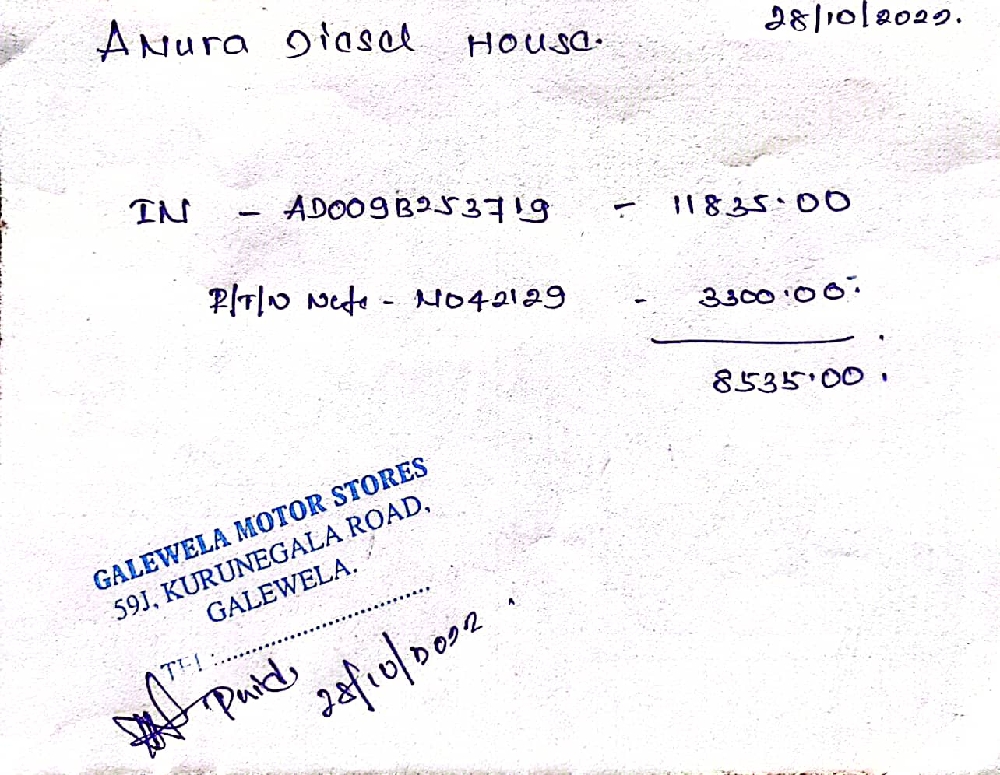 28/10/2022.
Anura Diesel House.
IN - AD009B253719 - 11835.00
R/T/N Note - N042129 - 3300.00
8535.00
GALEWELA MOTOR STORES
591, KURUNEGALA ROAD,
GALEWELA.
TEL :
Paid 28/10/2022